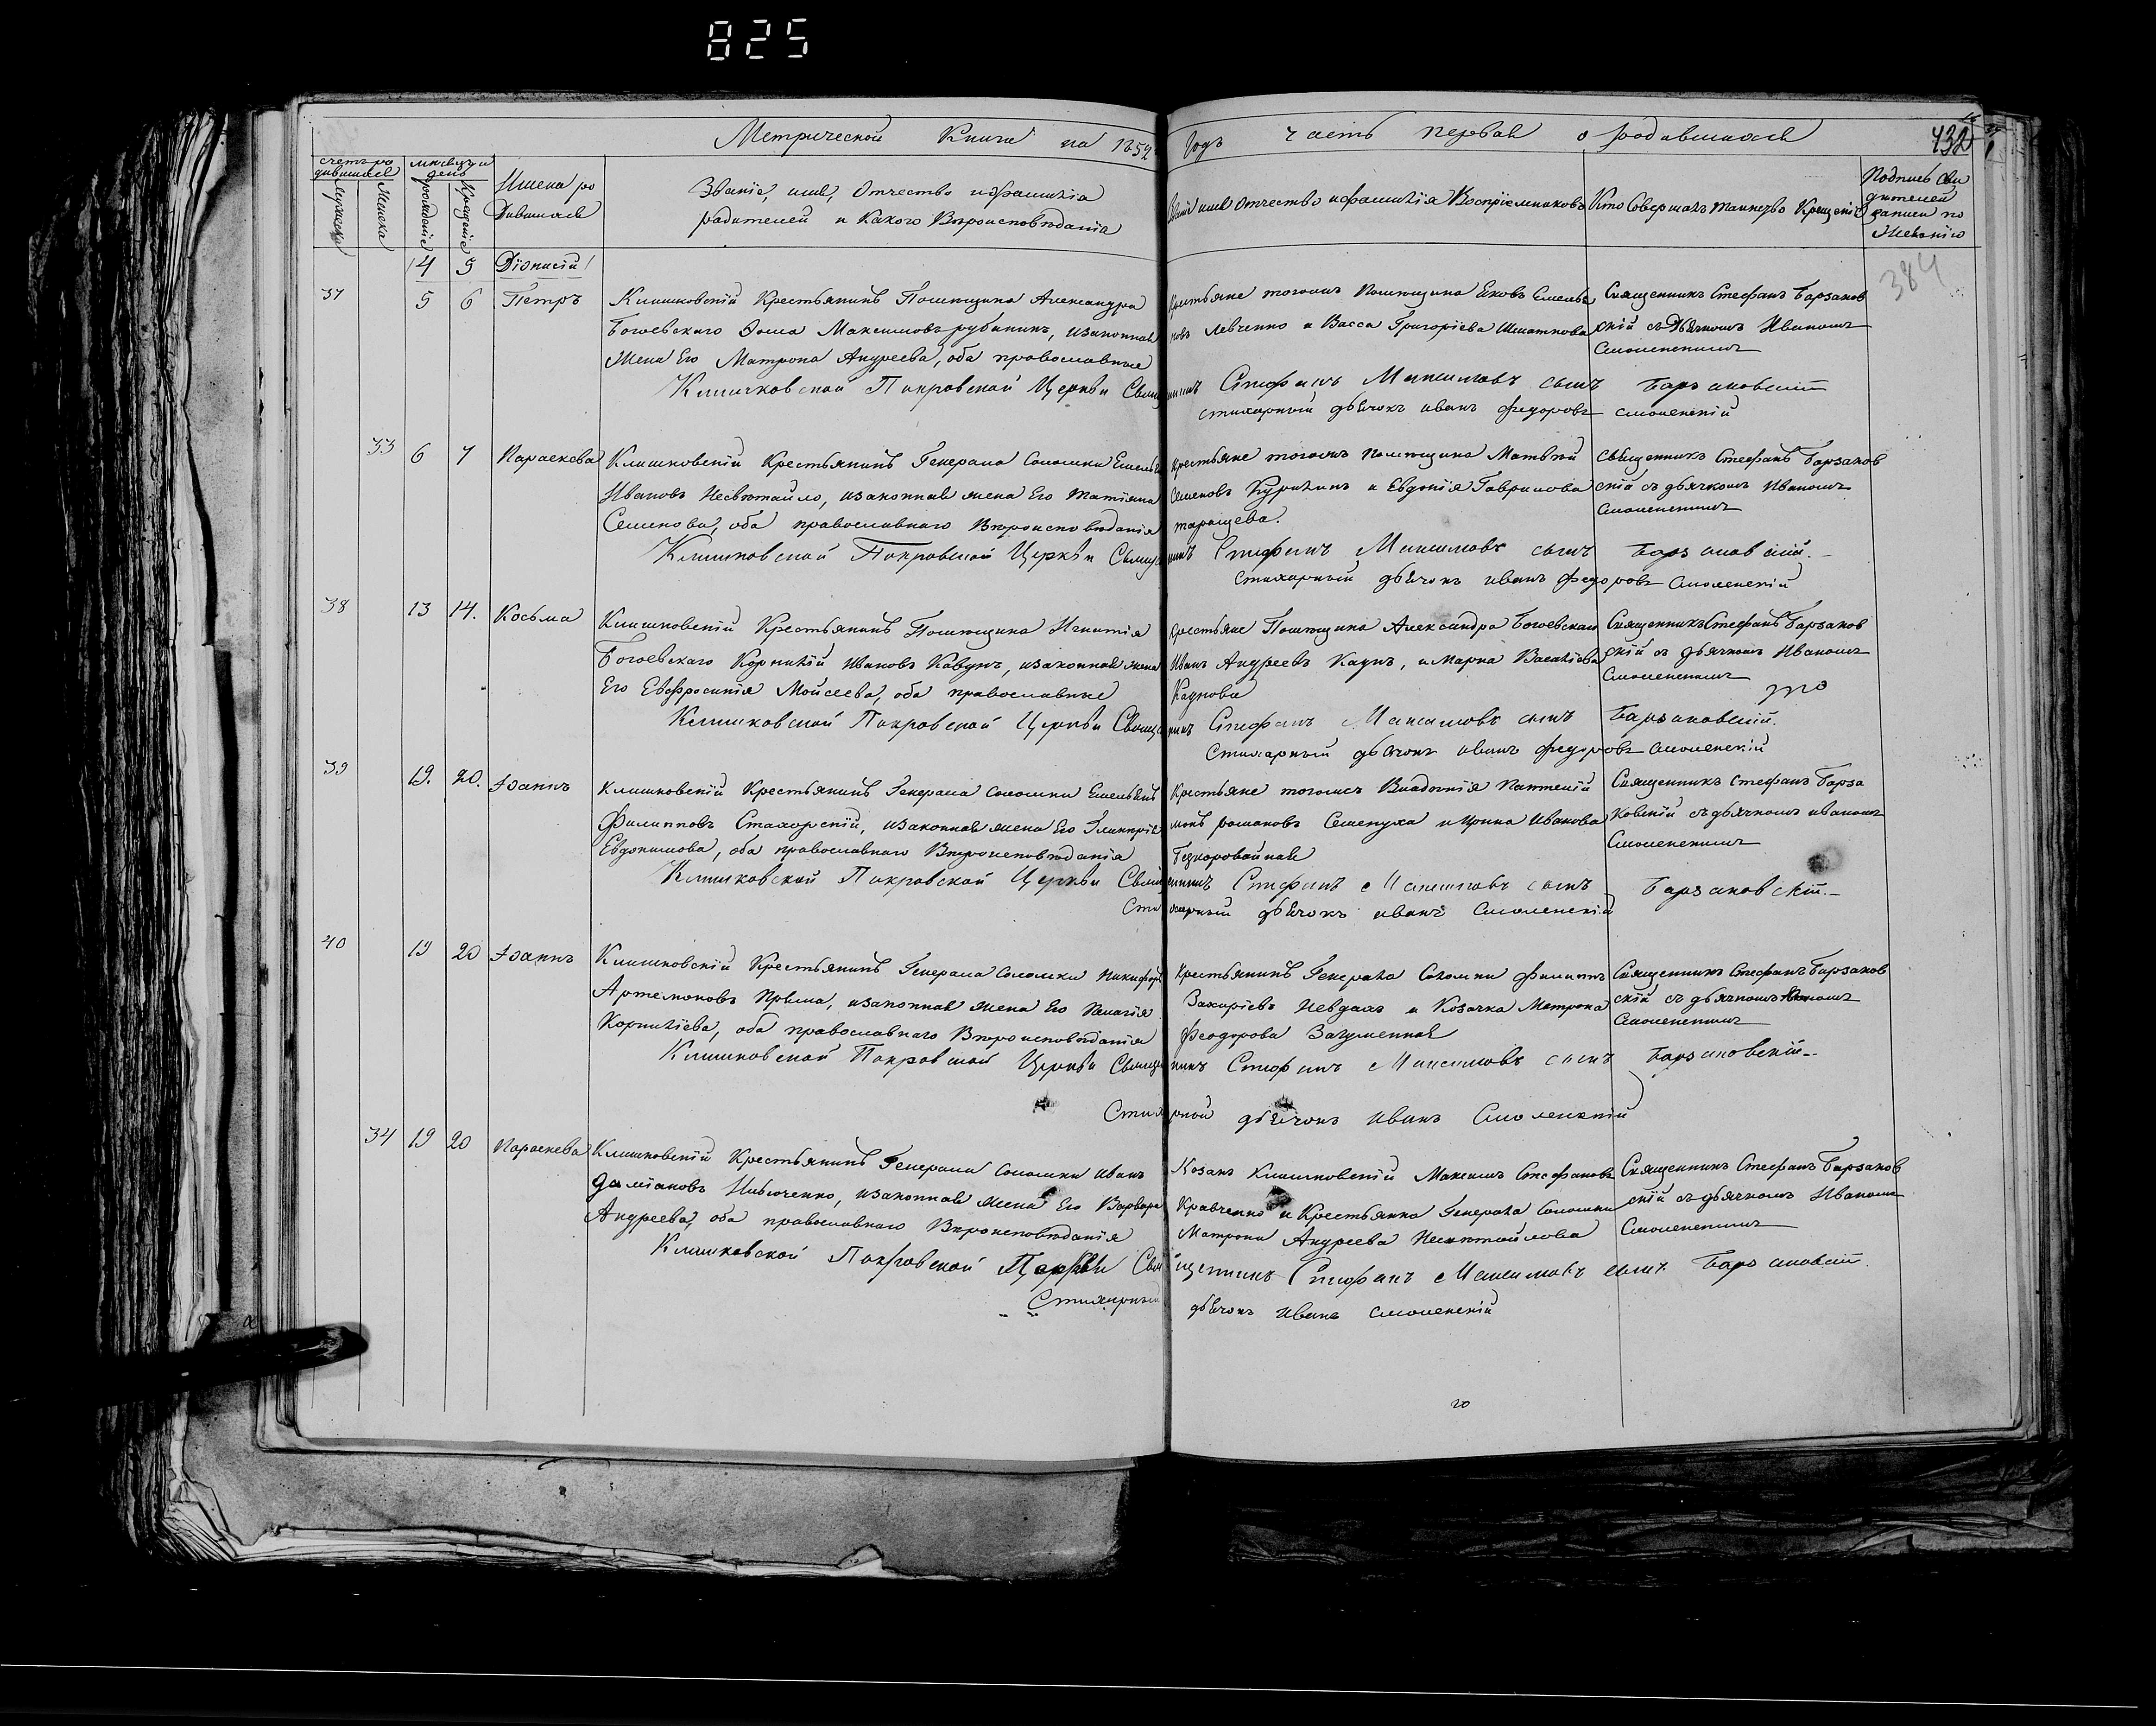 825
Метрической Книги на 1852 Годъ часть первая о родившихся
432
384
счетъ родившихся
Мужеска
Женска
месяцъ и день
рожденіе
Крещеніе
Имена родившихся
Званіе, имя, Отчество и фамилія
родителей и Какого Вѣроисповѣданія
имя Отчество и фамилія Воспріемниковъ
Кто Совершалъ таинство Крещенія
Подпись свидѣтелей записи по Желанію
4 5 Діонисій
37 5 6 Петръ
Клишковскій Крестьянинъ Помѣщика Александра
Богаевскаго Фома Максимовъ рубанинъ, изаконная
Жена Его Матрона Андреева, оба православные
Крестьяне тогожъ Помѣщика Яковъ Емельяновъ Левченко и Васса Григоріева
Священникъ Стефанъ Барзаковскій съ Дьячкомъ Иваномъ
Смоленскимъ
Клишковской Покровской Церкви Священникъ Стефанъ Максимовъ сынъ Барзаковскій
стихарный дьячокъ иванъ федоровъ смоленскій
33 6 7 Параскева
Клишковскій Крестьянинъ Генерала Соломки
Ивановъ Несвѣтайло, изаконная жена Его татіяна
Семенова, оба православнаго Вѣроисповѣданія
Крестьяне тогожъ помѣщика Матѳей
Семеновъ и Евдокія Гаврилова
таращева.
священникъ Стефанъ Барзаковскій съ дьячкомъ Иваномъ
Смоленскимъ
Клишковской Покровской Церкви Священникъ Стефанъ Максимовъ сынъ Барзаковскій
Стихарный дьячокъ иванъ федоровъ Смоленскій
38 13 14. Косьма
Клишковскій Крестьянинъ Помѣщика Игнатія
Богаевскаго Корнилій Ивановъ Кавунъ, изаконная жена
Его Евфросинія Мойсеева, оба православные
Крестьяне Помѣщика Александра Богаевскаго
Иванъ Андреевъ Каунъ, и Марна Василіева
Каунова
Священникъ Стефанъ Барзаковскій съ дьячкомъ Иваномъ
Смоленскимъ
Клишковской Покровской Церкви Священникъ Стефанъ Максимовъ сынъ Барзаковскій.
Стихарный дьячокъ иванъ федоровъ смоленскій
39 19. 20. Іоаннъ
Клишковскій Крестьянинъ Генерала Соломки Емельянъ
Филипповъ Стахорскій, изаконная жена Его Гликерія
Евдокимова, оба православнаго Вѣроисповѣданія
Крестьяне тогожъ
романовъ Семенуха и Ирина Иванова
Безкоровайная
Священникъ Стефанъ Барзаковскій съ дьячкомъ иваномъ
Смоленскимъ
Клишковской Покровской Церкви Священникъ Стефанъ Максимовъ сынъ Барзаковскій.
Стихарный дьячокъ иванъ Смоленскій
40 19 20 Іоаннъ
Клишковскій Крестьянинъ Генерала Соломки Никифоръ
Артемоновъ Прыма, изаконная жена Его Пелагія
Корниліева, оба православнаго Вѣроисповѣданія
Крестьянинъ Генерала Соломки Филиппъ
Захаріевъ Невдахъ и Козачка Матрона
Феодорова Загуменная
Священникъ Стефанъ Барзаковскій съ дьячкомъ Иваномъ
Смоленскимъ
Клишковской Покровской Церкви Священникъ Стефанъ Максимовъ сынъ Барзаковскій
Стихарный дьячокъ Иванъ Смоленскій
34 19 20 Параскева
Клишковскій Крестьянинъ Генерала Соломки Иванъ
даміановъ изаконная жена Его Варвара
Андреева, оба православнаго Вѣроисповѣданія
Козакъ Клишковскій Максимъ Стефановъ
Кравченко и Крестьянка Генерала Соломки
Матрона Андреева Несвѣтайлова
Священникъ Стефанъ Барзаковскій съ дьячкомъ Иваномъ
Смоленскимъ
Клишковской Покровской Церкви Священникъ Стефанъ Максимовъ сынъ Барзаковскій
Стихарный дьячокъ Иванъ Смоленскій
20